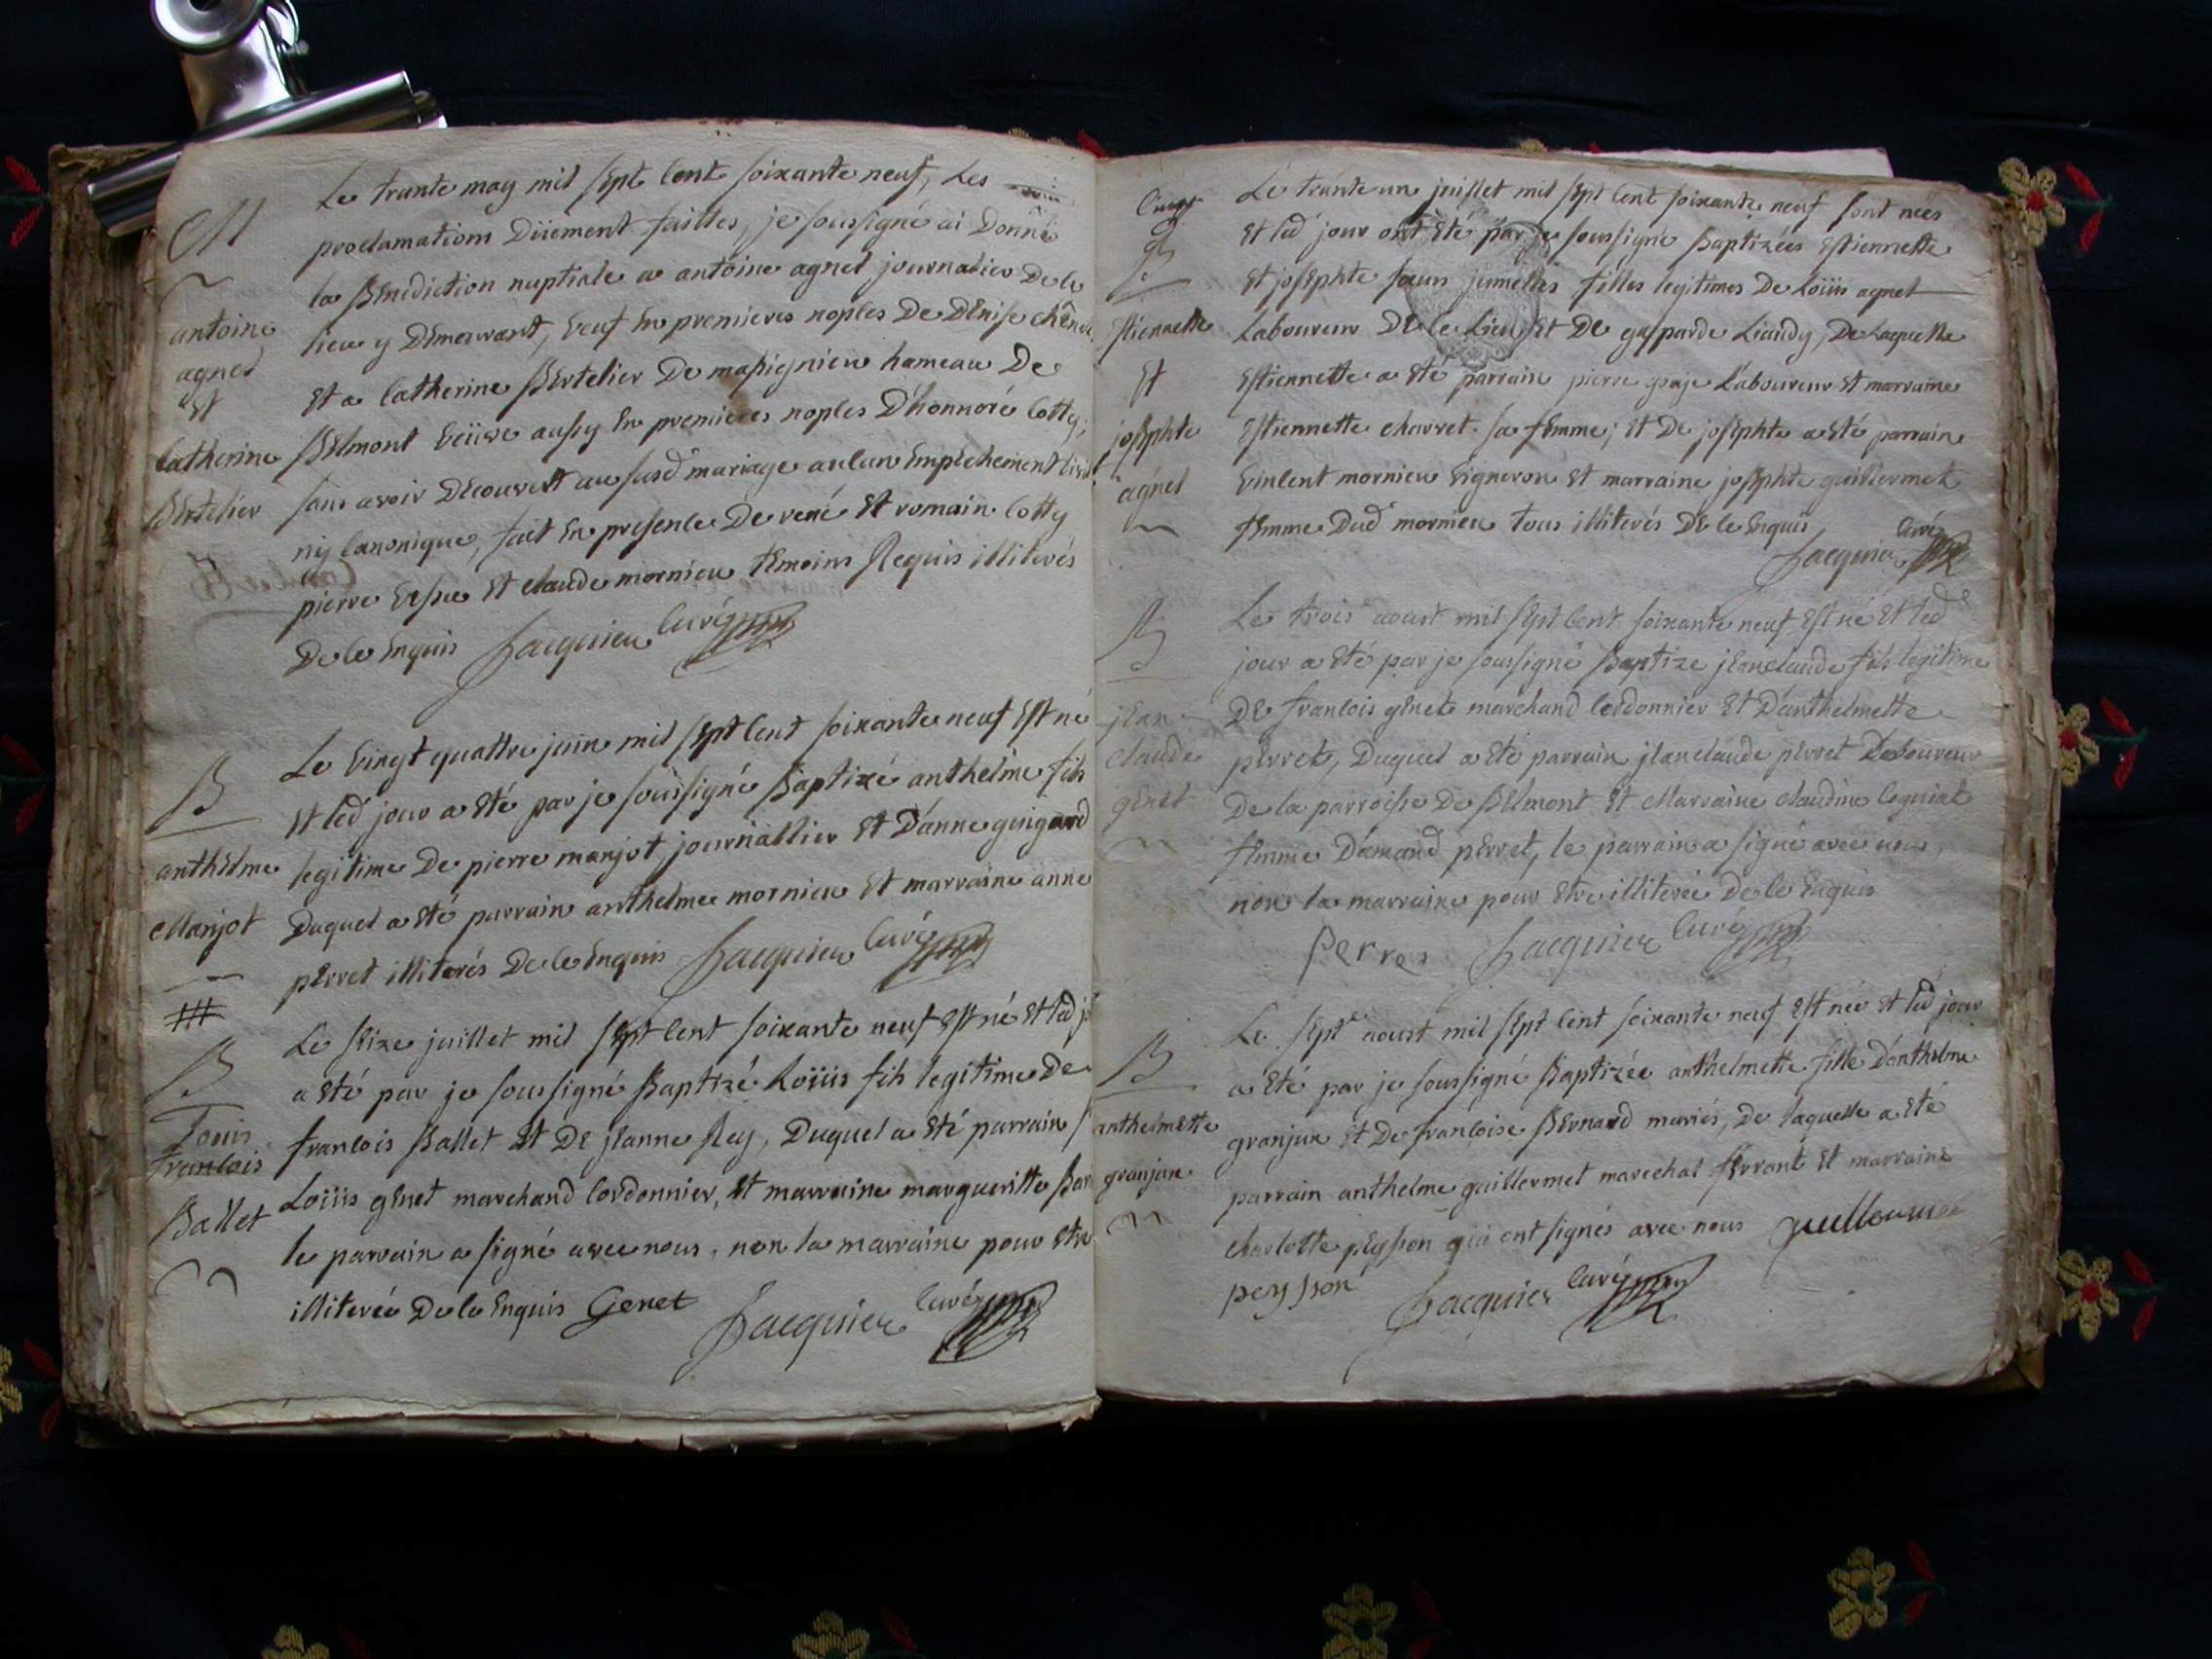 M
antoine
agnel
Et
Catherine
Bertelier
Le trante may mil sept cent soixante neuf, Les
proclamations Düement faittes, je soussigné ai Donné
la Benediction nuptiale a antoine agnel journalier De ce
lieu y Demeurant, veuf En premieres nopces De Denise
Et a Catherine Bertelier De massignieu hameau De
Belmont veüve aussy En premieres nopces D'honnoré Cotty,
sans avoir Decouvert au susd mariage aucun Empechement
ny canonique, fait En presence De rené Et romain Cotty
pierre Et claude mornieu temoins Requis illiterés
De ce Enquis Jacquier curé
B
anthelme
Marjot
Le vingt quattre juin mil sept cent soixante neuf Est né
Et led jour a Eté par je soussigné Baptizé anthelme fils
legitime De pierre marjot journallier Et D'anne guigard
Duquel a Eté parrain anthelme mornieu Et marraine anne
perret illiterés De ce Enquis Jacquier curé
B
Louis
francois
Ballet
Le seize juillet mil sept cent soixante neuf Est né Et led
a Eté par je soussigné Baptizé Loüis fils legitime De
francois Ballet Et De jeanne Rey, Duquel a Eté parrain
Loüis genet marchand Cordonnier, Et marraine margueritte
le parrain a signé avec nous, non la marraine pour Etre
illiterée De ce Enquis Genet Jacquier curé
B
Estiennette
Et
josephte
agnel
Le trante un juillet mil sept cent soixante neuf sont nées
Et led jour ont Eté par je soussigné Baptizées Estiennette
Et josephte soeurs jumelles filles legitimes De Loüis agnel
Laboureur De ce Lieu Et De gasparde Liaudy, De Laquelle
Estiennette a Eté parrain pierre Laboureur Et marraine
Estiennette charvet sa femme; Et De josephte a Eté parrain
vincent mornieu vigneron Et marraine josephte guillermet
femme Dud mornieu tous illiterés De ce Enquis
Jacquier curé
B
jean
claude
genet
Le trois aoust mil sept cent soixante neuf Est né Et led
jour a Eté par je soussigné Baptize jean claude fils legitime
De francois genet marchand Cordonnier Et D'anthelmette
perret, Duquel a Eté parrain jean claude perret Laboureur
De la parroisse De Belmont Et Marraine claudine
femme D'amand perret, le parrain a signé avec nous,
non la marraine pour Etre illiterée De ce Enquis
Perres Jacquier curé
B
anthelmette
granjan
Le sept aoust mil sept cent soixante neuf Est née Et led jour
a Eté par je soussigné Baptizée anthelmette fille D'anthelme
granjan Et De francoise Bernard mariés, De laquelle a Eté
parrain anthelme guillermet marechal ferrant Et marraine
charlotte peysson qui ont signés avec nous
peysson Jacquier curé